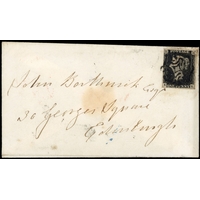 John Borthwick Esqr
20 George Square
Edinburgh